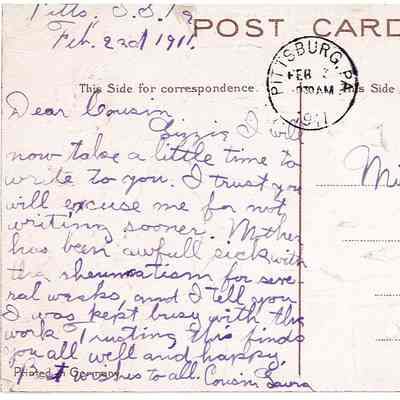 Pitts, S.S. Pa
Feb. 23d 1911.
POST CARD
PITTSBURG, PA.
FEB
30 AM
1911
This Side for correspondence.
This Side
Dear Cousin
Lizzie I will
now take a little time to
write to you. I trust you
will excuse me for not
writing sooner. Mother
has been awfull sick with
the rheumatism for seve-
ral weeks, and I tell you
I was kept busy with the
work Trusting this finds
you all well and happy.
Printed in Germany
wishes to all. Cousin Laura
Mi